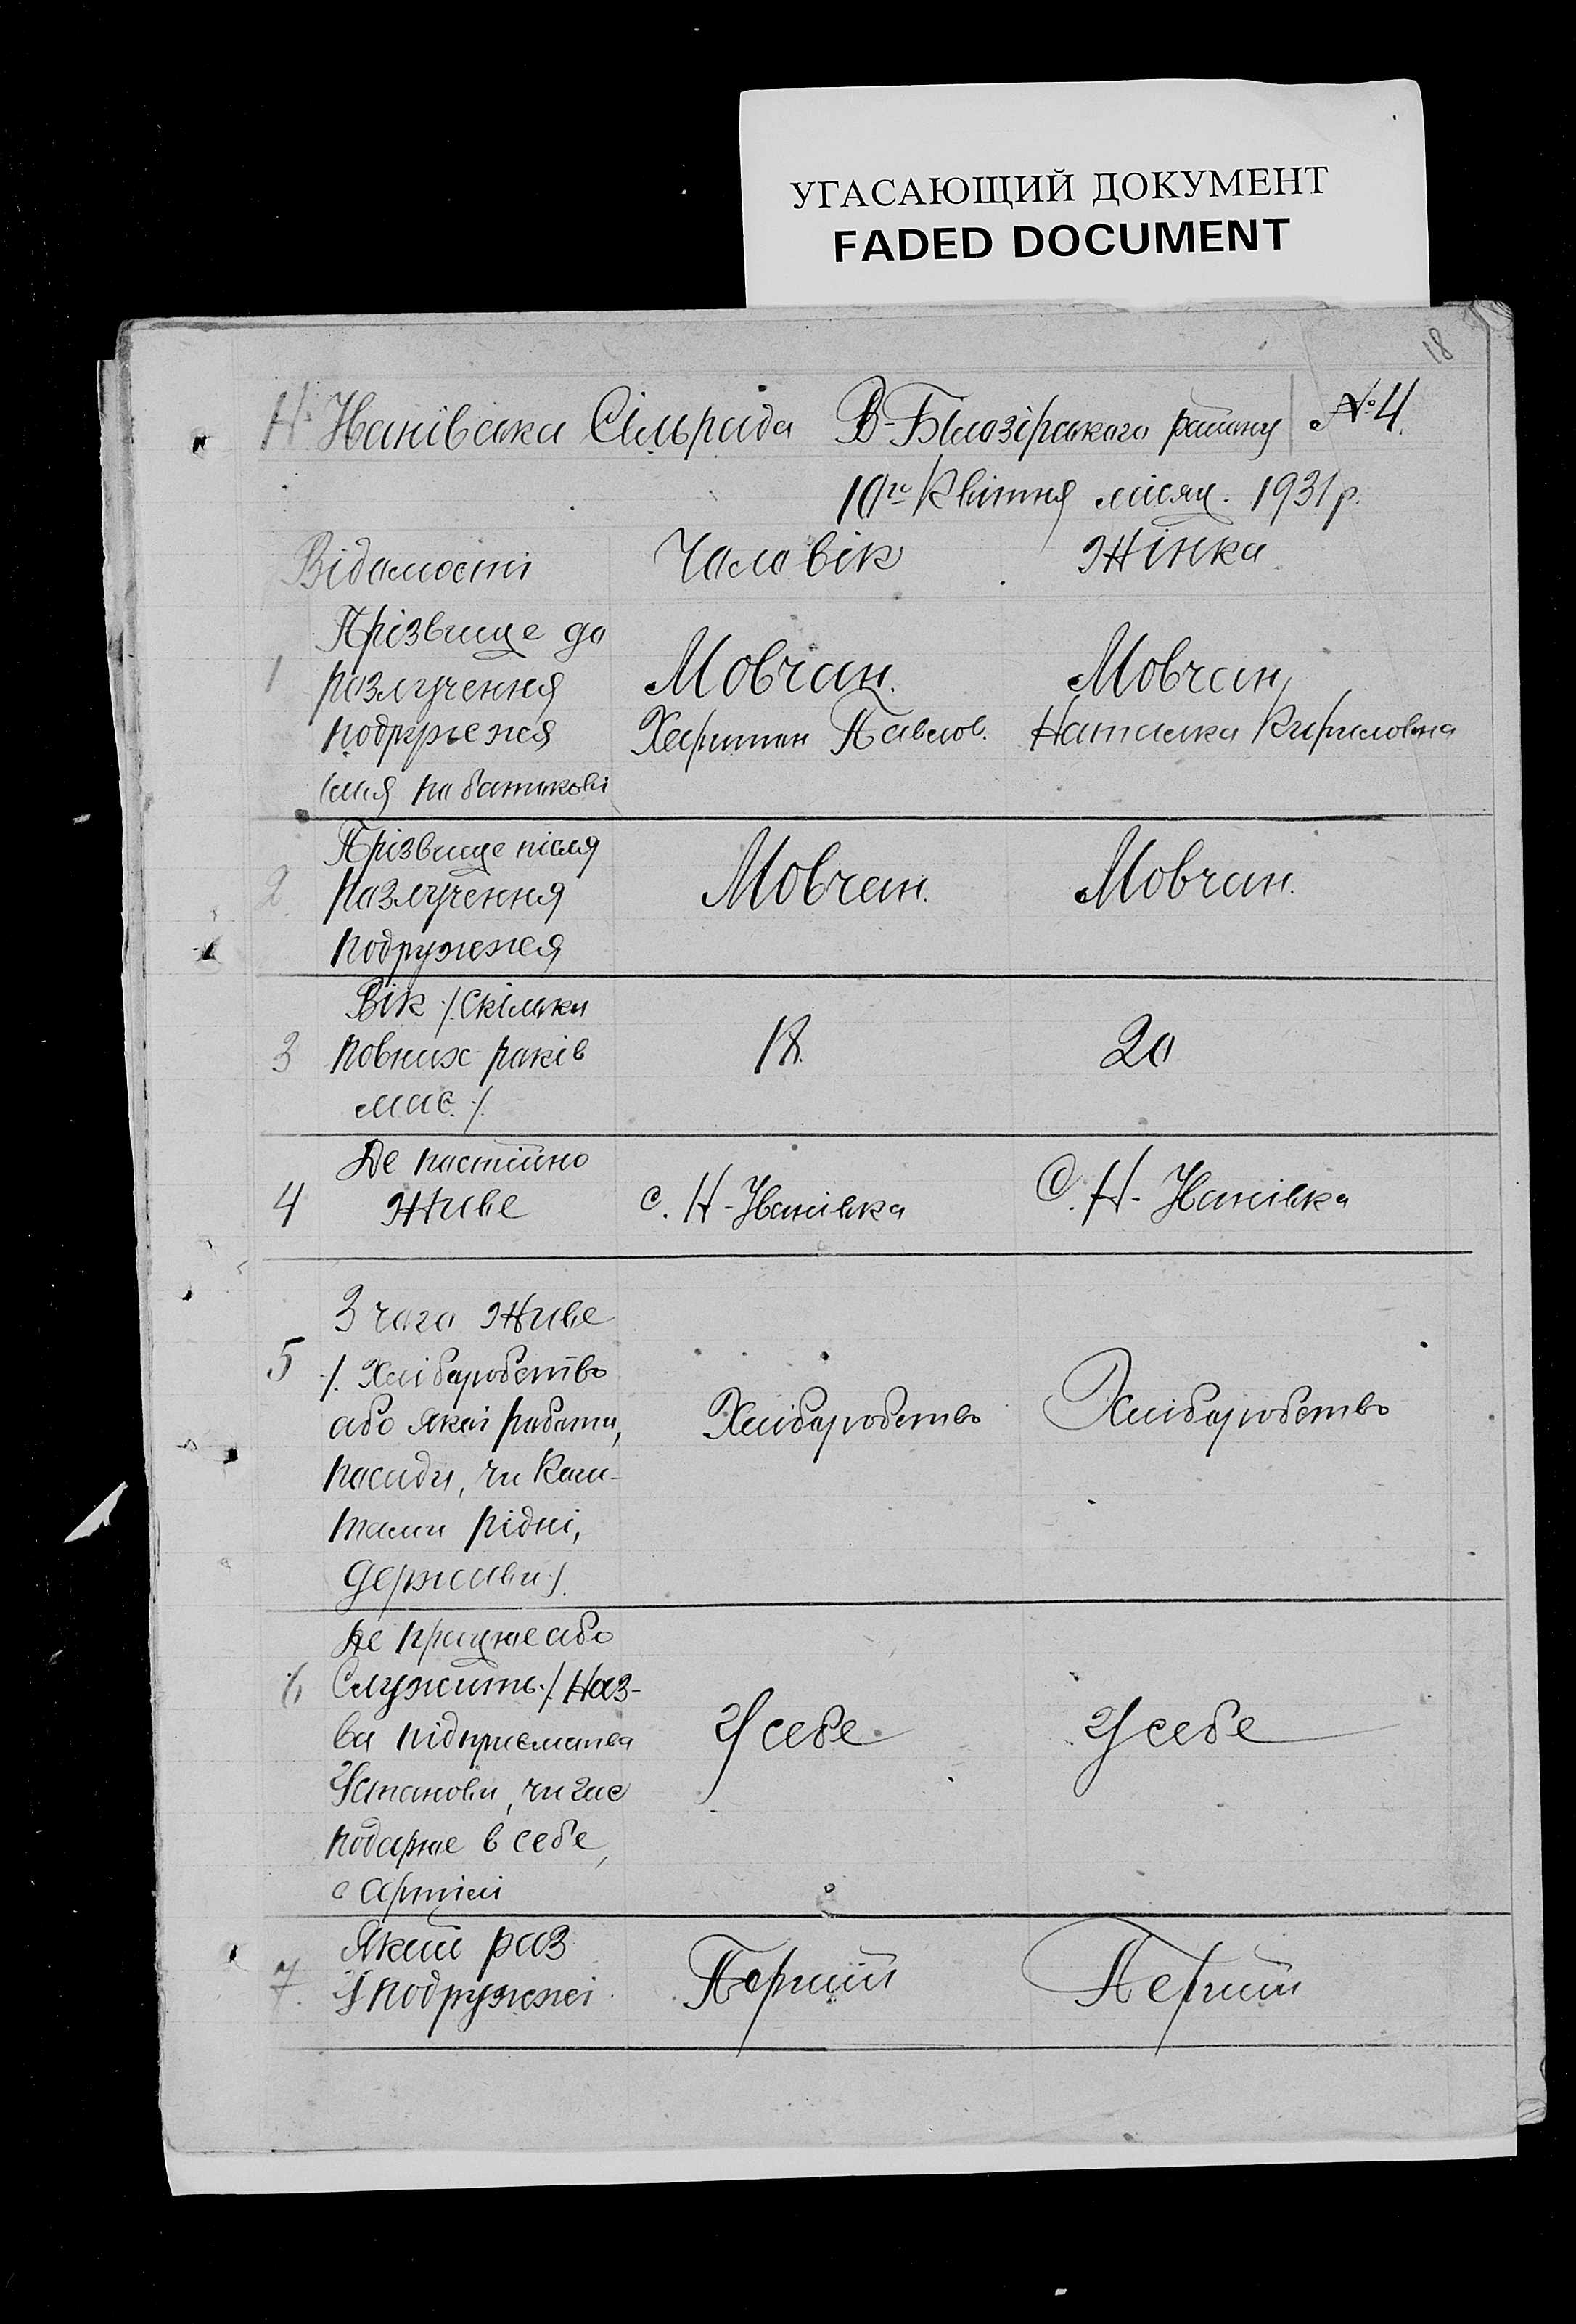 УГАСАЮЩИЙ ДОКУМЕНТ
FADED DOCUMENT
18
Н. Іванівська Сільрада В-Білозірського району № 4.
10го Квітня місяц. 1931 р.
Відомості Чоловік Жінка
1 Прізвище до розлучення подружжя імя по батькові
Мовчан. Харитон Павлов.
Мовчан Наталка Кириловна
2. Прізвище після розлучення подружжя
Мовчан.
Мовчан.
3 Вік /. Скільки повних років має. /.
18.
20
4 Де постійно живе
с. Н-Іванівка
С. Н-Іванівка
5 З чого живе
/. Хліборобство
або якої роботи,
посади, чи кош-
тами рідні,
держави /.
Хліборобство
Хліборобство
6 Де працює або
Служить. /. Наз-
ва підприємства
Установи, чи гос
подарює в себе,
в артілі
У себе
У себе
7. Який раз
У подружжі
Перший
Перший